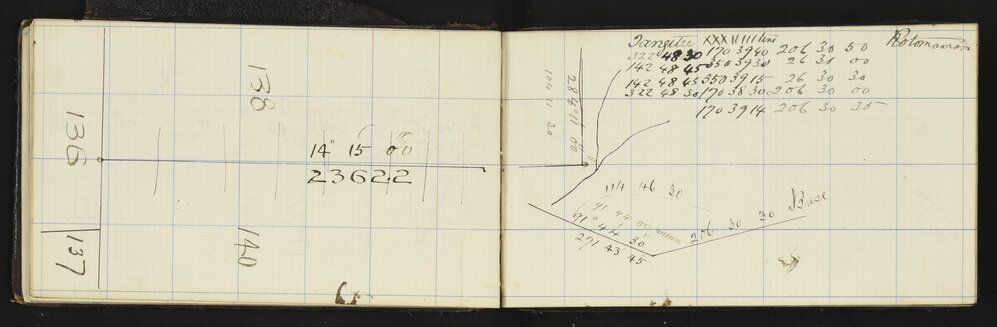 136
138
14° 15 00
2362.2
137
140
XXXIIIII line
322 48 30 170 39 40 206 30 50
142 48 45 350 39 30 26 31 00
142 48 45 350 39 15 26 30 30
322 48 30 170 38 30 206 30 00
170 39 14 206 30 35
284 11 00
104 11 30
114 46 30
91 44 00 mean
91° 44' 30"
271 43 45
206 30 30 Base